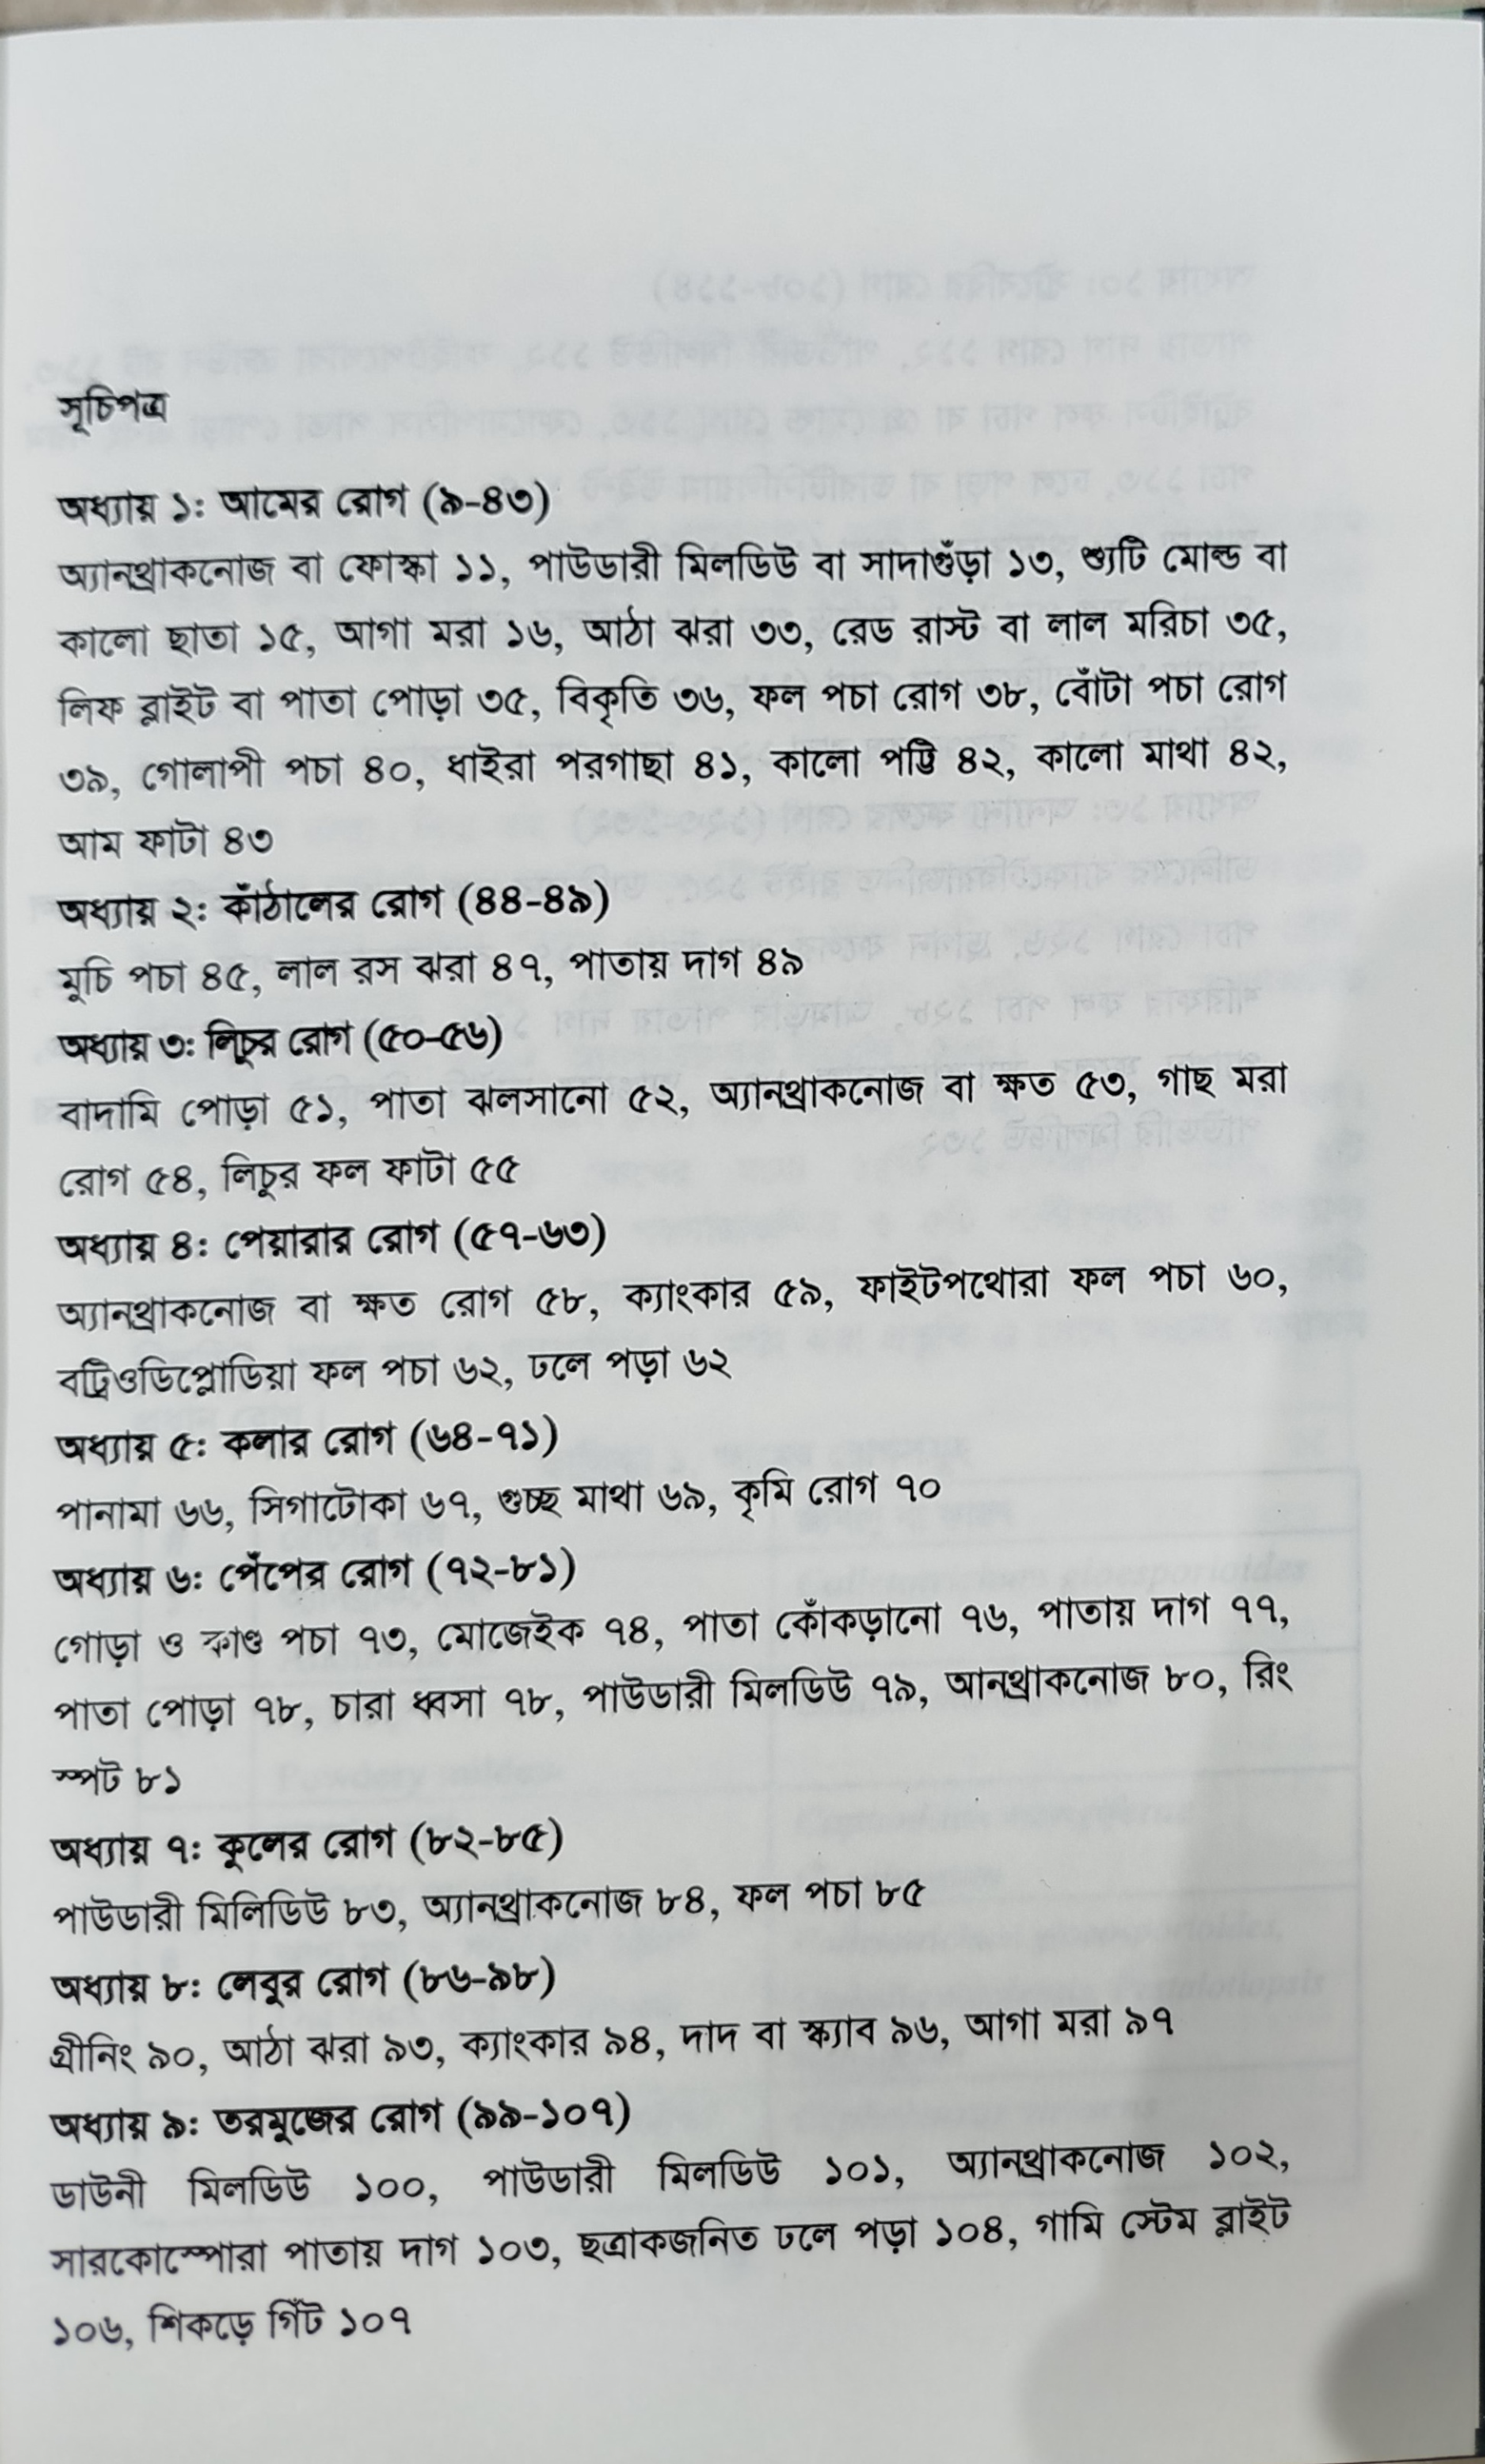 সূচিপত্র
অধ্যায় ১: আমের রোগ (৯-৪৩)
অ্যানথ্রাকনোজ বা ফোস্কা ১১, পাউডারী মিলডিউ বা সাদাগুঁড়া ১৩, শ্যুটি মোল্ড বা
কালো ছাতা ১৫, আগা মরা ১৬, আঠা ঝরা ৩৩, রেড রাস্ট বা লাল মরিচা ৩৫,
লিফ ব্লাইট বা পাতা পোড়া ৩৫, বিকৃতি ৩৬, ফল পচা রোগ ৩৮, বোঁটা পচা রোগ
৩৯, গোলাপী পচা ৪০, ধাইরা পরগাছা ৪১, কালো পট্টি ৪২, কালো মাথা ৪২,
আম ফাটা ৪৩
অধ্যায় ২: কাঁঠালের রোগ (৪৪-৪৯)
মুচি পচা ৪৫, লাল রস ঝরা ৪৭, পাতায় দাগ ৪৯
অধ্যায় ৩: লিচুর রোগ (৫০-৫৬)
বাদামি পোড়া ৫১, পাতা ঝলসানো ৫২, অ্যানথ্রাকনোজ বা ক্ষত ৫৩, গাছ মরা
রোগ ৫৪, লিচুর ফল ফাটা ৫৫
অধ্যায় ৪: পেয়ারার রোগ (৫৭-৬৩)
অ্যানথ্রাকনোজ বা ক্ষত রোগ ৫৮, ক্যাংকার ৫৯, ফাইটপথোরা ফল পচা ৬০,
বট্রিওডিপ্লোডিয়া ফল পচা ৬২, ঢলে পড়া ৬২
অধ্যায় ৫: কলার রোগ (৬৪-৭১)
পানামা ৬৬, সিগাটোকা ৬৭, গুচ্ছ মাথা ৬৯, কৃমি রোগ ৭০
অধ্যায় ৬: পেঁপের রোগ (৭২-৮১)
গোড়া ও কাণ্ড পচা ৭৩, মোজেইক ৭৪, পাতা কোঁকড়ানো ৭৬, পাতায় দাগ ৭৭,
পাতা পোড়া ৭৮, চারা ধ্বসা ৭৮, পাউডারী মিলডিউ ৭৯, আনথ্রাকনোজ ৮০, রিং
স্পট ৮১
অধ্যায় ৭: কুলের রোগ (৮২-৮৫)
পাউডারী মিলিডিউ ৮৩, অ্যানথ্রাকনোজ ৮৪, ফল পচা ৮৫
অধ্যায় ৮: লেবুর রোগ (৮৬-৯৮)
গ্রীনিং ৯০, আঠা ঝরা ৯৩, ক্যাংকার ৯৪, দাদ বা স্ক্যাব ৯৬, আগা মরা ৯৭
অধ্যায় ৯: তরমুজের রোগ (৯৯-১০৭)
ডাউনী মিলডিউ ১০০, পাউডারী মিলডিউ ১০১, অ্যানথ্রাকনোজ ১০২,
সারকোস্পোরা পাতায় দাগ ১০৩, ছত্রাকজনিত ঢলে পড়া ১০৪, গামি স্টেম ব্লাইট
১০৬, শিকড়ে গিঁট ১০৭